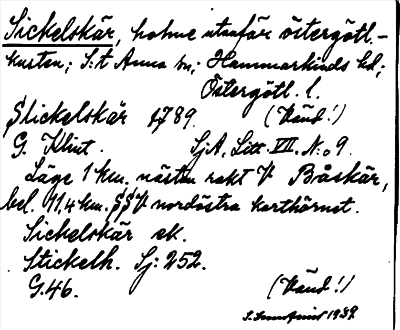 Sickelskär, holme utanför östergötl.-
kusten; S:t Anna sn; Hammarkinds hd;
Östergötl. l.
Stickelskär 1789. (Vänd!)
G. Klint. SjA, Litt. VII. No 9.
Läge 1 km. nästan rakt V Båskär,
bel. 11,4 km. SSV nordöstra karthörnet.
Sickelskär ek.
Stickelh. Sj: 252.
G.46. (Vänd!)
1939